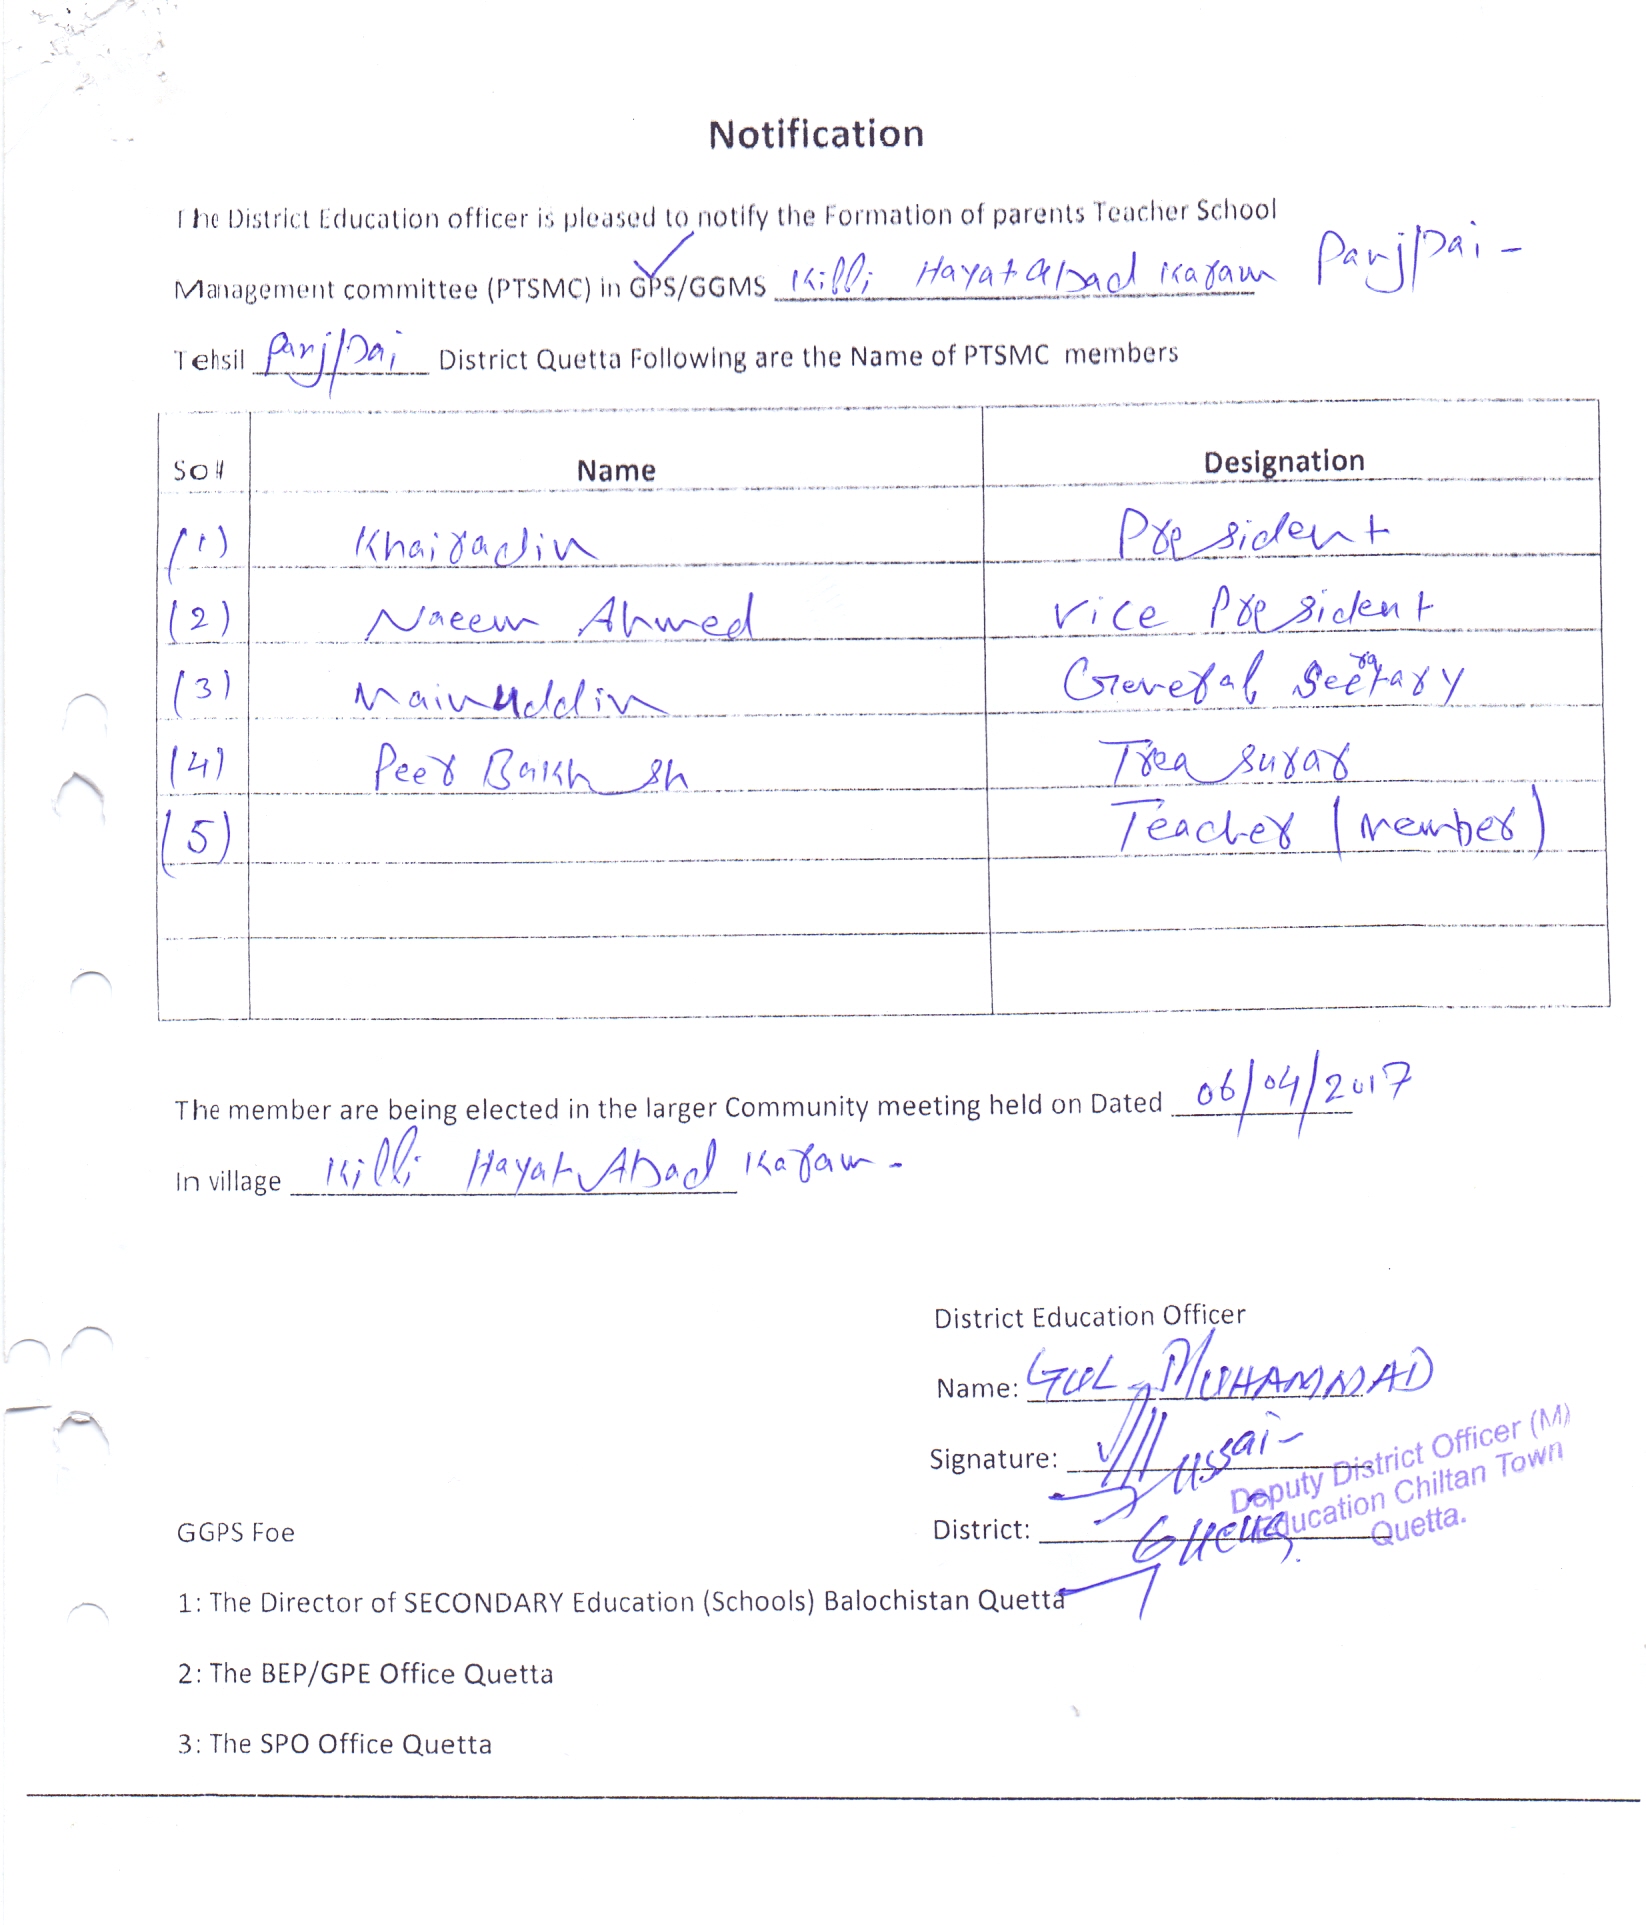 Notification
The District Education officer is pleased to notify the Formation of parents Teacher School
Management committee (PTSMC) in GPS/GGMS Killi Hayat Abad Karam Panjpai -
Tehsil Panjpai District Quetta Following are the Name of PTSMC members
So# Name Designation
(1) Khairadin President
(2) Naeem Ahmed Vice President
(3) Mainuddin General Secretary
(4) Peer Bakhsh Treasurar
(5) Teacher (member)
The member are being elected in the larger Community meeting held on Dated 06/04/2017
In village Killi Hayat Abad Karam -
District Education Officer
Name: GUL MUHAMMAD
Signature:
Deputy District Officer (M)
Education Chiltan Town
Quetta.
District: Quetta
GGPS Foe
1: The Director of SECONDARY Education (Schools) Balochistan Quetta
2: The BEP/GPE Office Quetta
3: The SPO Office Quetta